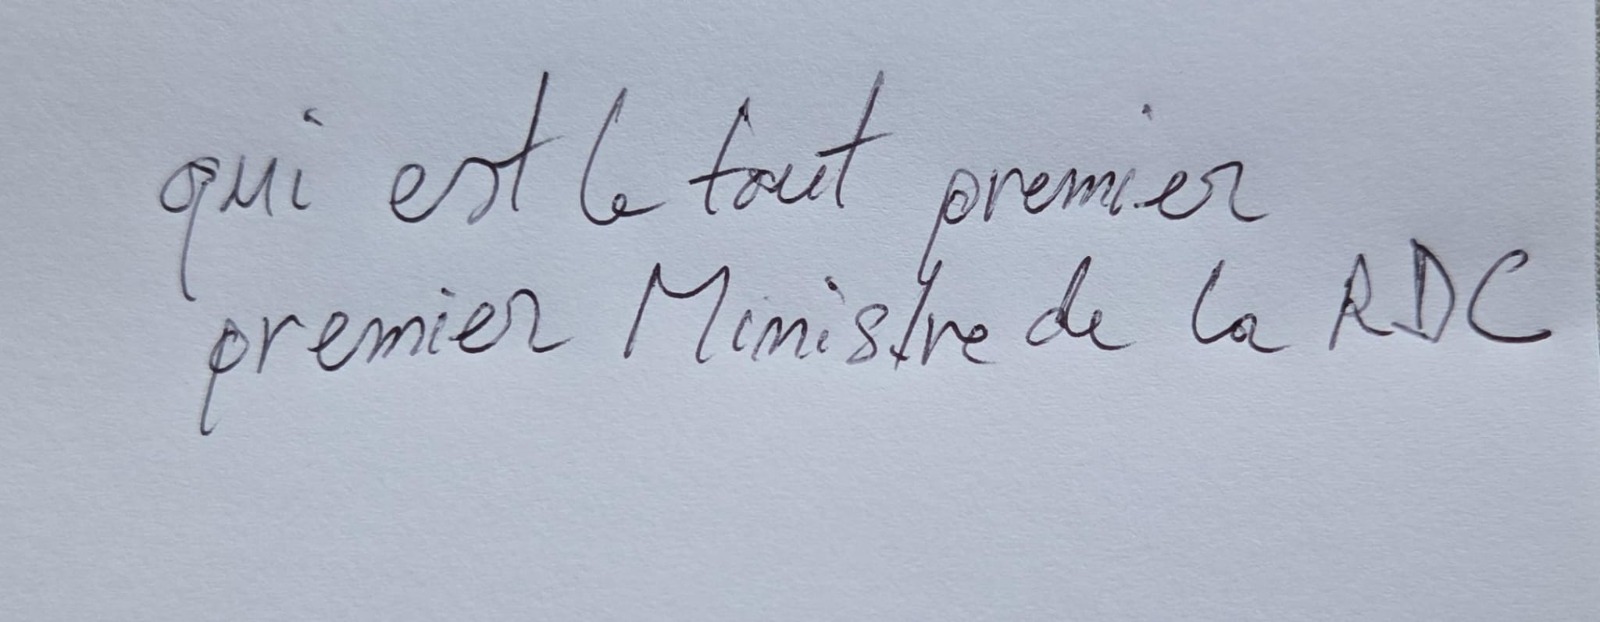 qui est le tout premier
premier Ministre de la RDC